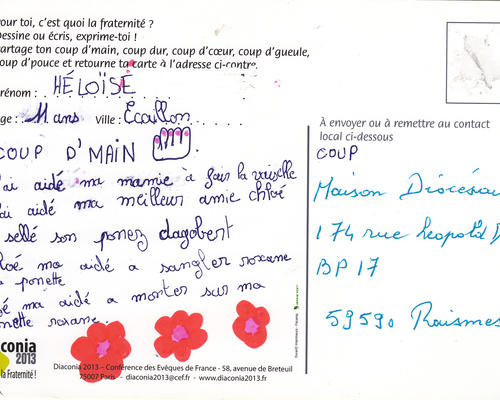 our toi, c'est quoi la fraternité ?
essine ou écris, exprime-toi !
artage ton coup d'main, coup dur, coup d'cœur, coup d'gueule,
oup d'pouce et retourne ta carte à l'adresse ci-contre.
rénom : HÉLOÏSE
ge : 11 ans Ville : Écaillon
COUP D'MAIN
'ai aidé ma mamie à fair la vaiselle
'ai aidé ma meilleur amie chloé
sellé son poney dagobert
loé ma aidé a sangler roxane
a ponette
é ma aidé a monter sur ma
nette roxane.
aconia
2013
la Fraternité !
Diaconia 2013 – Conférence des Evêques de France - 58, avenue de Breteuil
75007 Paris - diaconia2013@cef.fr - www.diaconia2013.fr
À envoyer ou à remettre au contact
local ci-dessous
COUP
Maison Diocésai
174 rue Leopold
BP 17
59590 Raismes